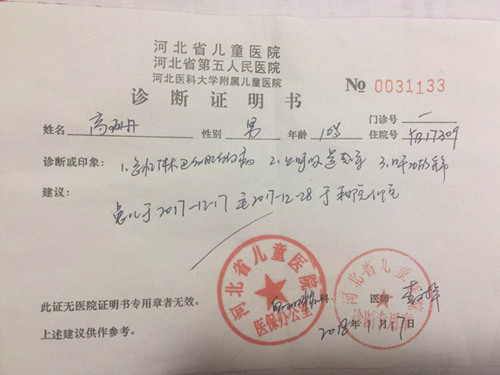 河北省儿童医院
河北省第五人民医院
河北医科大学附属儿童医院
No 0031133
诊断证明书
门诊号 一
姓名 高 丹 性别 男 年龄 10岁 住院号
诊断或印象：1.急性淋巴细胞白血病 2.上呼吸道感染 3.
建议：
患儿于2017-12-17至2017-12-28于我院住院
河北省儿童医院
医保办公室
河北省儿童医院
诊断专用章
此证无医院证明书专用章者无效。 科 医师
上述建议供作参考。 2018年1月17日